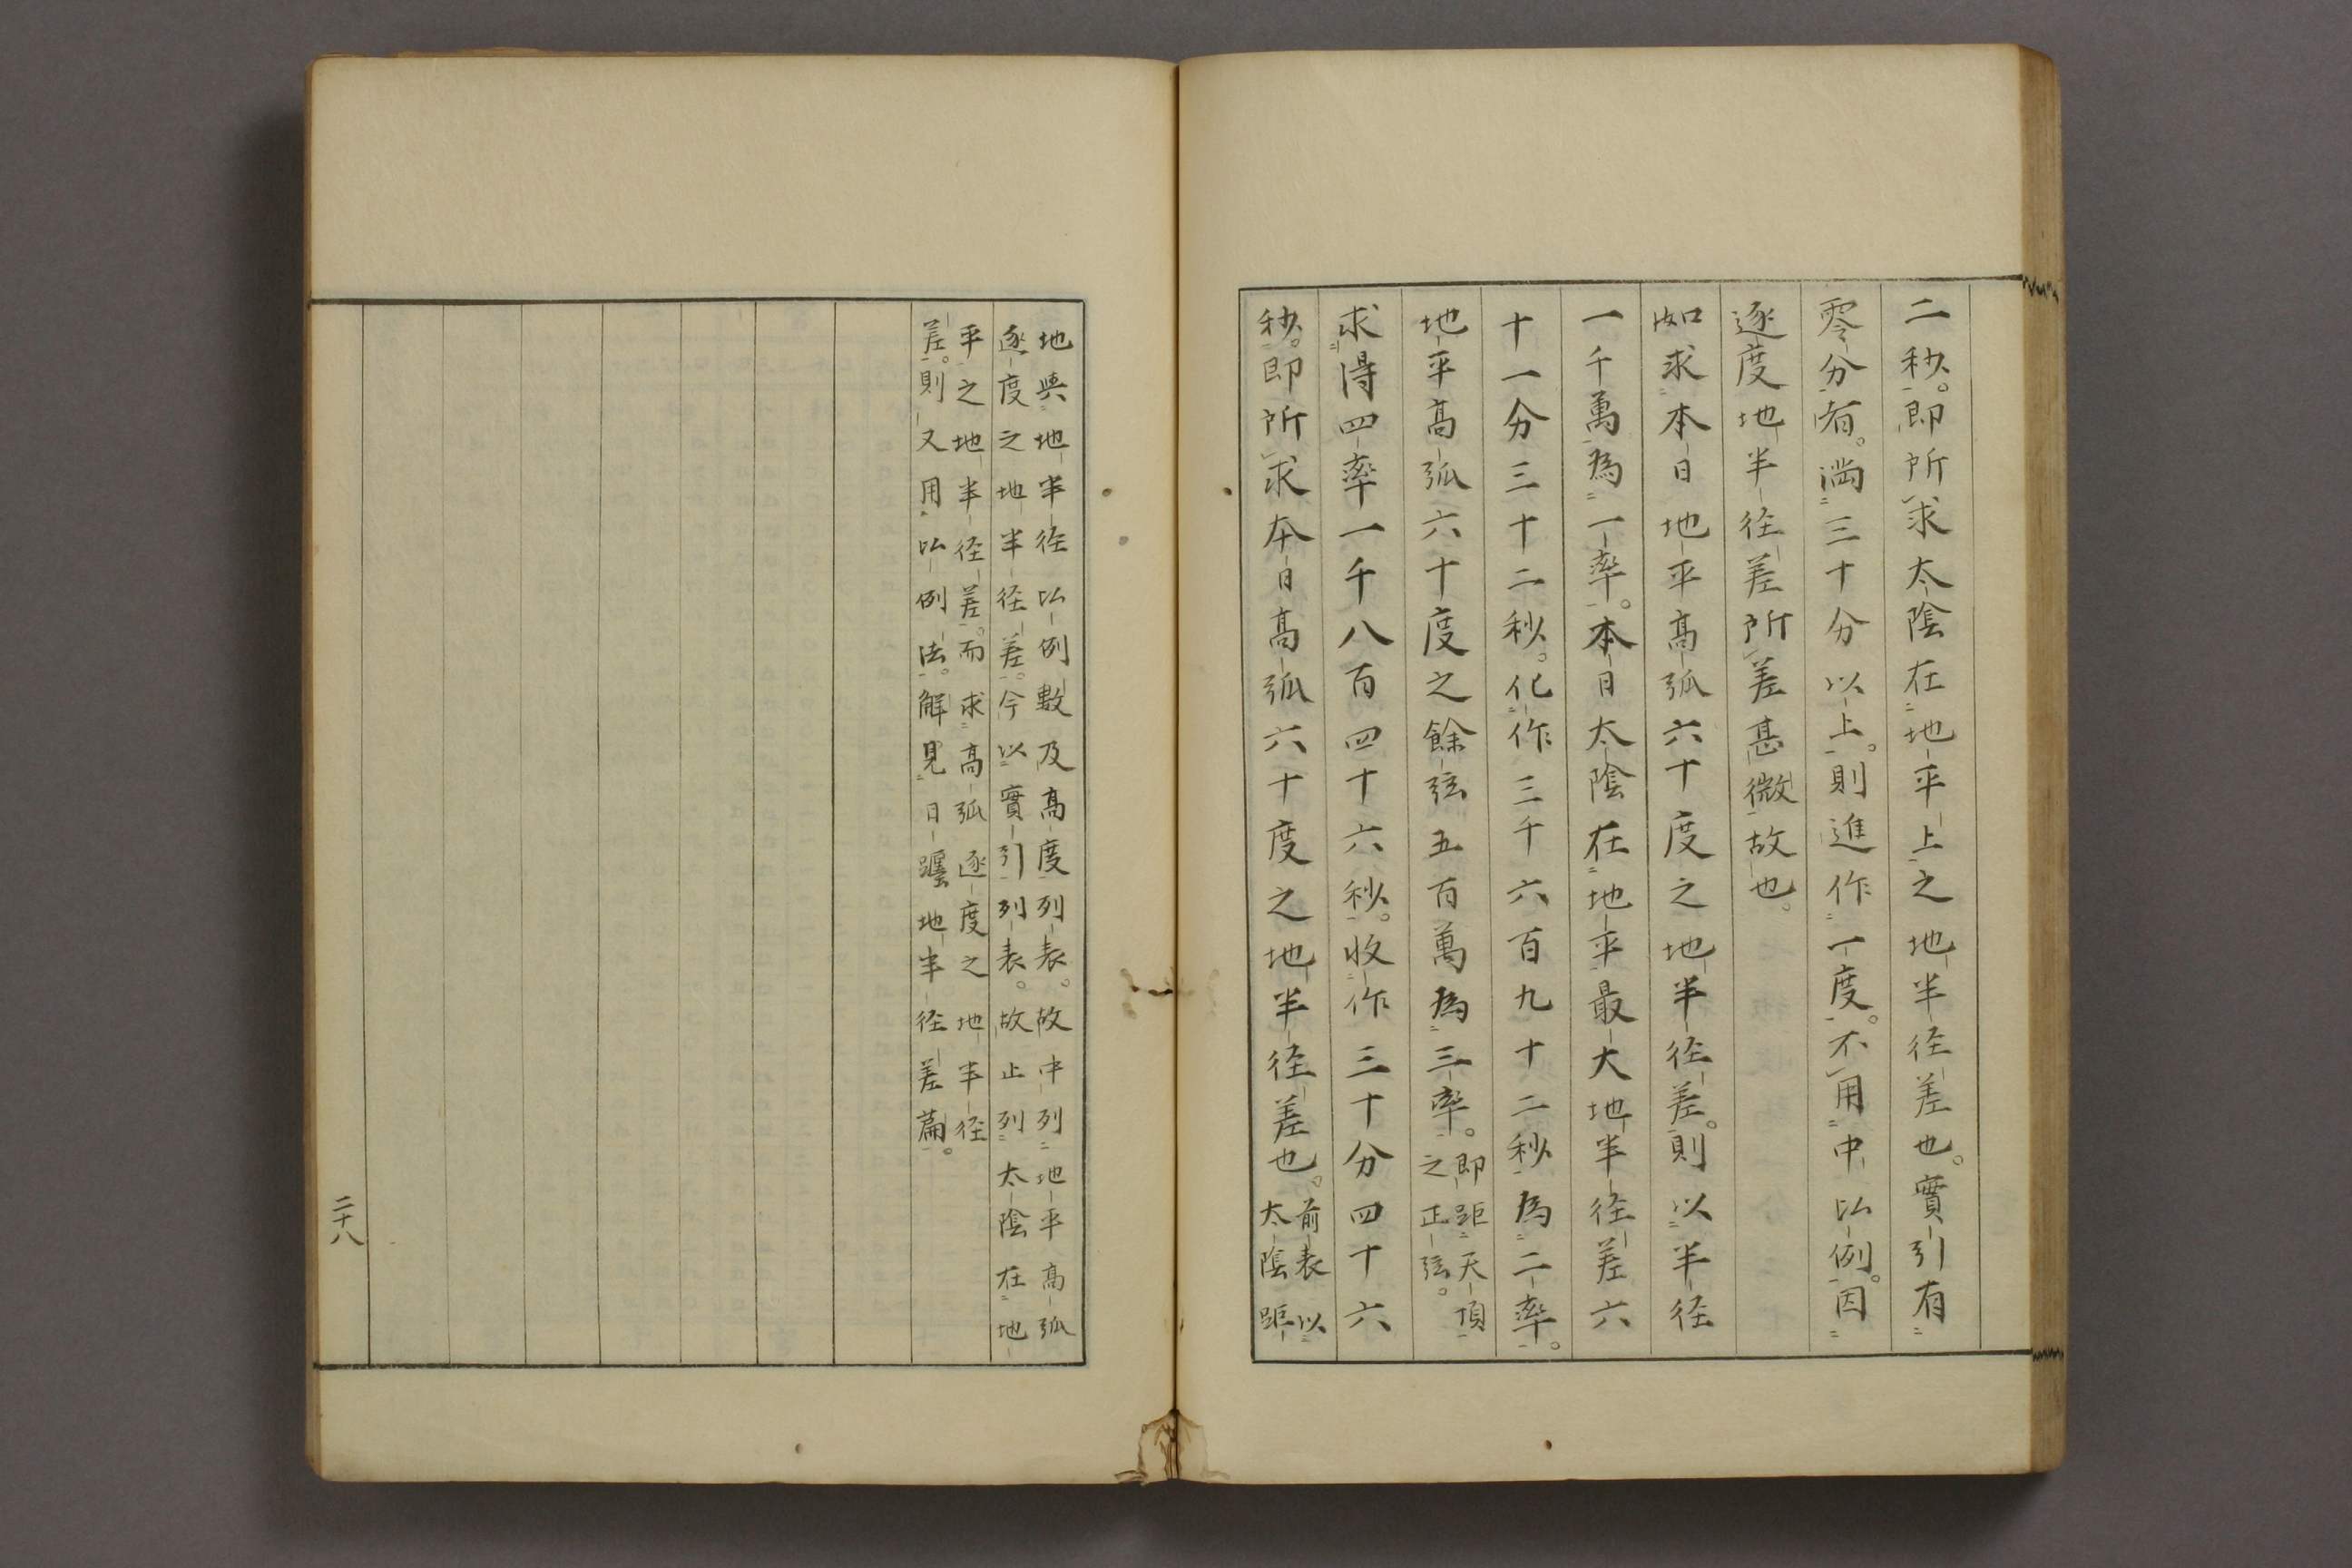 二秒。即所求太陰在地平上之地半径差也。實引有
零分者。満三十分以上。則進作一度。不用中比例。因
逐度地半径差所差甚微故也。
如求本日地平高弧六十度之地半径差。則以半径
一千萬為一率。本日太陰在地平最大地半径差六
十一分三十二秒。化作三千六百九十二秒為二率。
地平高弧六十度之餘弦五百萬為三率。即距天頂
之正弦。
求得四率一千八百四十六秒。收作三十分四十六
秒。即所求本日高弧六十度之地半径差也。前表以
太陰距
地與地半径比例數及高度列表。故中列地平高弧
逐度之地半径差。今以實引列表。故止列太陰在地
平之地半径差。而求高弧逐度之地半径
差。則又用比例法。解見日躔地半径差篇。
二十八